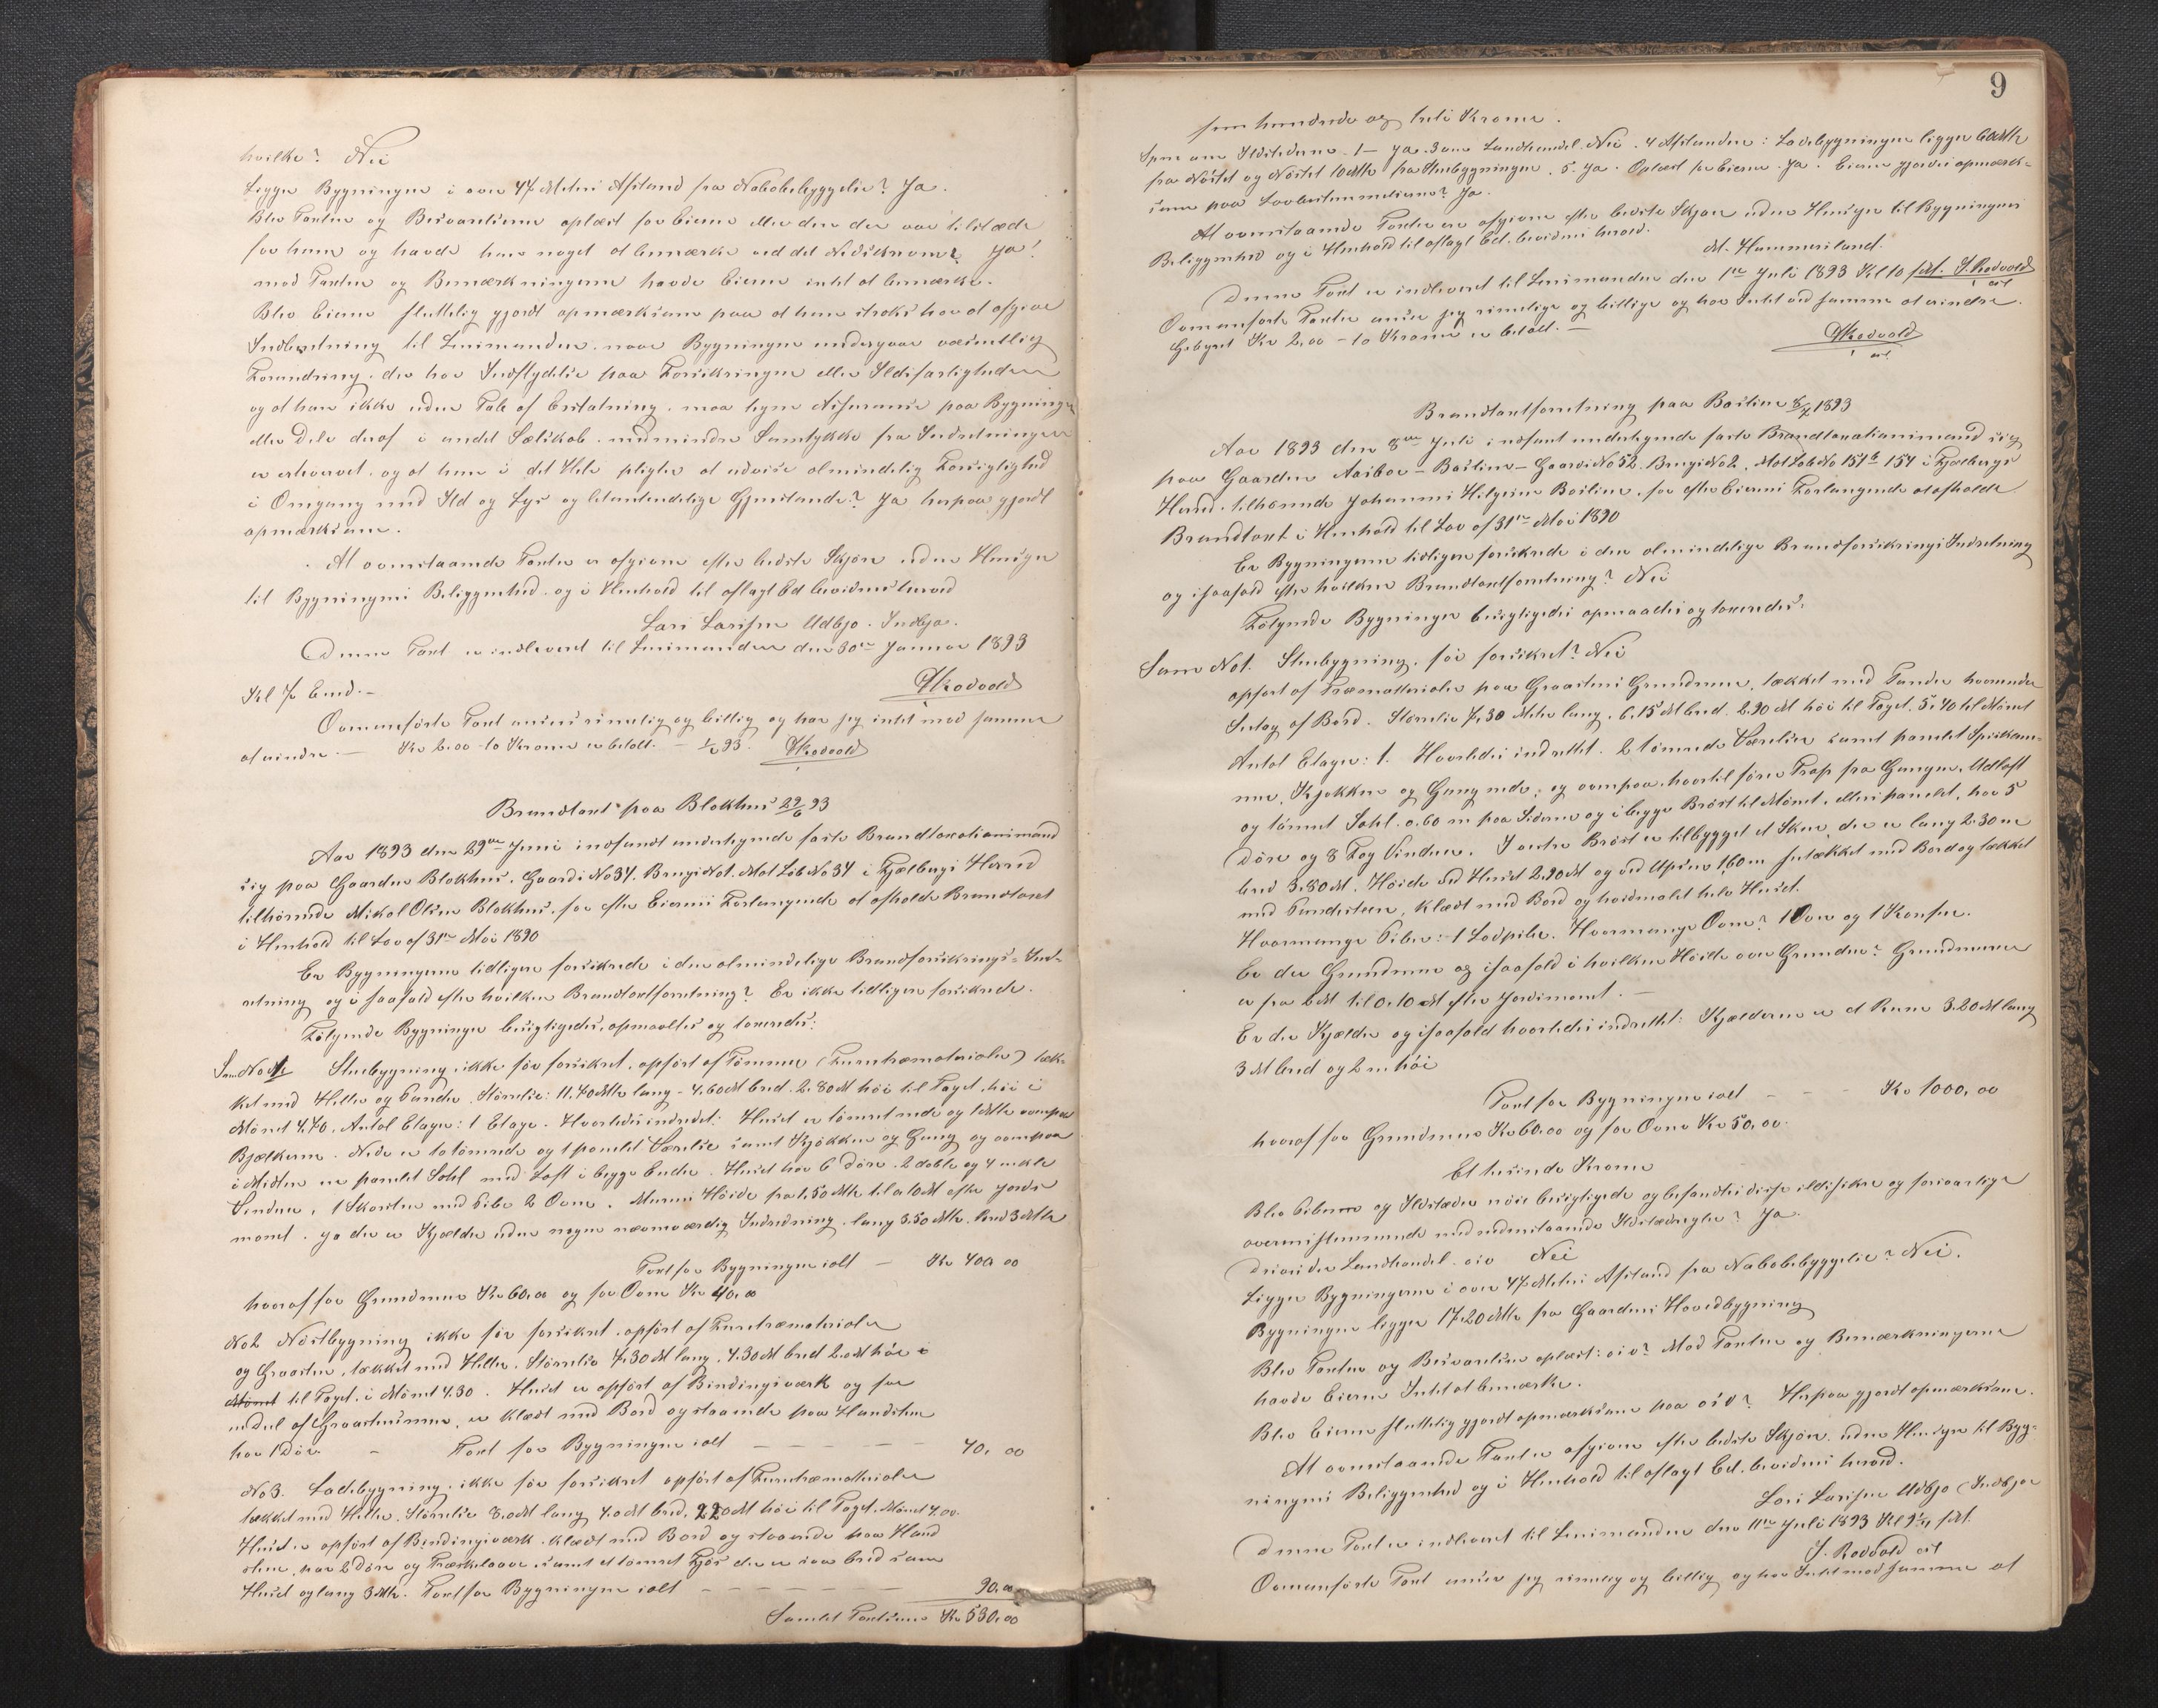 hvilke? Nei
Ligger Bygningen i over 47 Meters Afstand fra Nabobebyggelse? Ja.
Blev Taxten og Besvarelserne oplæst for Eieren eller den der var tilstæde
for ham og havde han noget at bemærke ved det Nedskrevne? Ja!
mod Taxten og Bemærkningerne havde Eieren intet at bemærke.
Blev Eieren sluttelig gjordt opmærksom paa at han straks har at afgive
Indberetning til Lensmanden, naar Bygningen undergaar væsentlig
Forandring, der har Indflydelse paa Forsikringen eller Ildsfarligheden
og at han ikke uden Tab af Erstatning maa tegne Assurance paa Bygningen
eller Dele deraf i andet Selskab, medmindre Samtykke fra Indretningen
er erhvervet, og at han i det Hele pligter at udvise almindelig Forsigtighed
i Omgang med Ild og Lys og letantændelige Gjenstande? Ja herpaa gjordt
opmærksom.
At ovenstaaende Taxter er afgivne efter bedste Skjøn uden Hensyn
til Bygningens Beliggenhed og i Henhold til aflagt Ed bevidnes herved
Lars Larssen Udbjo. Indbjo.
Denne Taxt er indleveret til Lensmanden den 30te Januar 1893
Kl 7 Emd. –
Rodvold
Ovenanførte Taxt ansees rimelig og billig og har jeg intet mod samme
at erindre. — Kr 2.00 – to Kroner er betalt. – 93. Rodvold
Brandtaxt paa Blokhus 29/6 93
Aar 1893 den 29de Juni indfandt undertegnede faste Brandtaxationsmand
sig paa Gaarden Blokhus, Gaards No 34. Brugs No 1. Mat Løb No 34 i Fjelbergs Herred
tilhørende Mikal Olsen Blokhus, for efter Eierens Forlangende at afholde Brandtaxt
i Henhold til Lov af 31te Mai 1890
Er Bygningerne tidligere forsikrede i den almindelige Brandforsikrings-Ind-
retning og i saafald efter hvilken Brandtaxtforretning? Er ikke tidligere forsikrede.
Følgende Bygninger besigtigedes, opmaaltes og taxeredes:
Sam No 1 Stuebygning, ikke før forsikret, opført af Tømmer (Furutræmaterialer) tæk-
ket med Heller og Pander. Størrelse: 11,70 Mtr lang – 4,60 M bred. 2.80 M høi til Taget, høi i
Mønet 4.70. Antal Etager: 1 Etage. Hvorledes indredet: Huset er tømret nede og 1 Mtr ovenpaa
Bjelkerne. Nede er to tømrede og 1 panelt Værelse samt Kjøkken og Gang og ovenpaa
i Midten en panelt Sahl med Loft i begge Ender. Huset har 6 Døre. 2 doble og 4 enkle
Vinduer, 1 Skorsten med Pibe 2 Ovne. Murens Høide fra 1,50 Mtr til 0.10 M efter Jords
monet. Ja der er Kjælder uden nogen nævneværdig Indredning, lang 3.50 Mtr. bred 3 Mtr
Taxt for Bygningen ialt — Kr 400 00
hvoraf for Grundmur Kr 60.00 og for Ovne Kr 40.00
No 2 Nøstbygning ikke før forsikret, opført af Furutræmaterialer
og Graasten, tækket med Heller. Størrelse 7,30 M lang, 4.30 M bred 2.0 M høi i
Mønet til Taget, i Mønet 4.30. Huset er opført af Bindingsværk og for
endel af Graastensmur, er klædt med Bord og staaende paa Handsten
har 1 Dør. – Taxt for Bygningen ialt — — — — — 40,00
No 3. Ladebygning, ikke før forsikret opført af Furutræmaterialer
tækket med Heller. Størrelse 8.0 M lang, 4.0 M bred, 2.20 M høi til Taget. Mønet 4.00.
Huset er opført af Bindingsværk, klædt med Bord og staaende paa Hand
sten, har 2 Døre og Træskelaave, samt et tømret Fjøs der er saa bred som
Huset og lang 3 Mtr. Taxt for Bygningen ialt — — — 90.00
Samlet Taxtsum Kr 530,00
9
fem hundrede og Kroner.
Spm om Ildstederne. 1 – Ja. 3 om Landhandel. Nei. 4 Afstanden: Ladebygningen ligger Mtr
fra Nøstet og Nøstet 10 Mtr fra Stuebygningen. 5. Ja. Oplæst for Eieren. Ja. Eieren gjordes opmærk-
som paa Lovbestemmelserne? Ja.
At ovenstaaende Taxter er afgivne efter bedste Skjøn uden Hensyn til Bygningens
Beliggenhed og i Henhold til aflagt Ed. bevidnes herved.
M. Hammersland.
Denne Taxt er indleveret til Lensmanden den 1te Juli 1893 Kl 10 fm. S. Rodvold
Ovenanførte Taxter anser jeg rimelige og billige og har Intet ved samme at erindre.
Gebyret Kr 2,00 – to Kroner er betalt. —
Rodvold
Brandtaxtforretning paa Børslien 8/7 1893
Aar 1893 den 8de Juli indfant undertegnede faste Brandtaxationsmand sig
paa Gaarden – Børslien – Gaards No 52. Brugs No 2. Mat Løb No 151b 154 i Fjelbergs
Herred, tilhørende Johannes Helgesen Børslien, for efter Eierens Forlangende at afholde
Brandtaxt i Henhold til Lov af 31te Mai 1890
Er Bygningerne tidligere forsikrede i den almindelige Brandforsikrings Indretning
og isaafald efter hvilken Brandtaxtforretning? Nei
Følgende Bygninger besigtigedes opmaaltes og taxeredes:
Sam No 1. Stuebygning, før forsikret? Nei
opført af Træmaterialer paa Graastens Grundmur, tækket med Pander hvorunder
Sutag af Bord. Størrelse 7,30 Mtr lang, 6.15 M bred. 2.90 M høi til Taget. 5,40 til Mønet
Antal Etager: 1. Hvorledes indrettet. 2 tømrede Værelser samt panelet Spiskam-
mer, Kjøkken og Gang nede, og ovenpaa, hvortil fører Trap fra Gangen, Udloft
og tømret Sahl. 0.60 m paa Siderne og i begge Brøst til Mønet, ellers panelt, har 5
Døre og 8 Fag Vinduer. I østre Brøst er tilbygget et Skur, der er lang 2.30 m
bred 3.80 M. Høide ved Huset 2.90 M og ved 1,60 m Indtækket med Bord og tækket
med Pandesteen, klædt med Bord og hvidmalet hele Huset.
Hvormange Piber: 1 Lodpibe. Hvormange Ovne? 1 Ovn og 1 Komfur.
Er der Grundmur og isaafald i hvilken Høide over Grunden? Grundmuren
er fra 2 M til 0,10 M efter Jordsmonet. —
Er der Kjælder og isaafald hvorledes indrettet: Kjælderen er et Rum 3.20 M lang
3 M bred og 2 m høi
Taxt for Bygningen ialt – – – Kr 1000,00
hvoraf for Grundmur Kr 60.00 og for Ovne Kr 50,00.
Et tusinde Kroner
Blev Piberne og Ildstæder nøie besigtigede og befandtes disse ildsikre og forsvarlige
overensstemmende med nedenstaaende Ildstædregler? Ja.
Drives der Landhandel osv Nei
Ligger Bygningerne i over 47 Meters Afstand fra Nabobebyggelse? Nei.
Bygningen ligger 17.20 Mtr fra Gaardens Hovedbygning
Blev Taxten og Besvarelsen oplæst: osv? Mod Taxten og Bemærkningerne
havde Eieren Intet at bemærke.
Blev Eieren sluttelig gjordt opmærksom paa osv? Herpaa gjordt opmærksom.
At ovenstaaende Taxt er afgiven efter bedste Skjøn, uden Hensyn til Byg-
ningens Beliggenhed og i Henhold til aflagt Ed, bevidnes herved.
Lars Larssen Udbjo (Indbjo
Denne Taxt er indleveret til Lensmanden den 11te Juli 1893 Kl 9 fm.
S. Rodvold
Ovenanførte Taxt anser jeg rimelig og billig og har Intet mod samme at